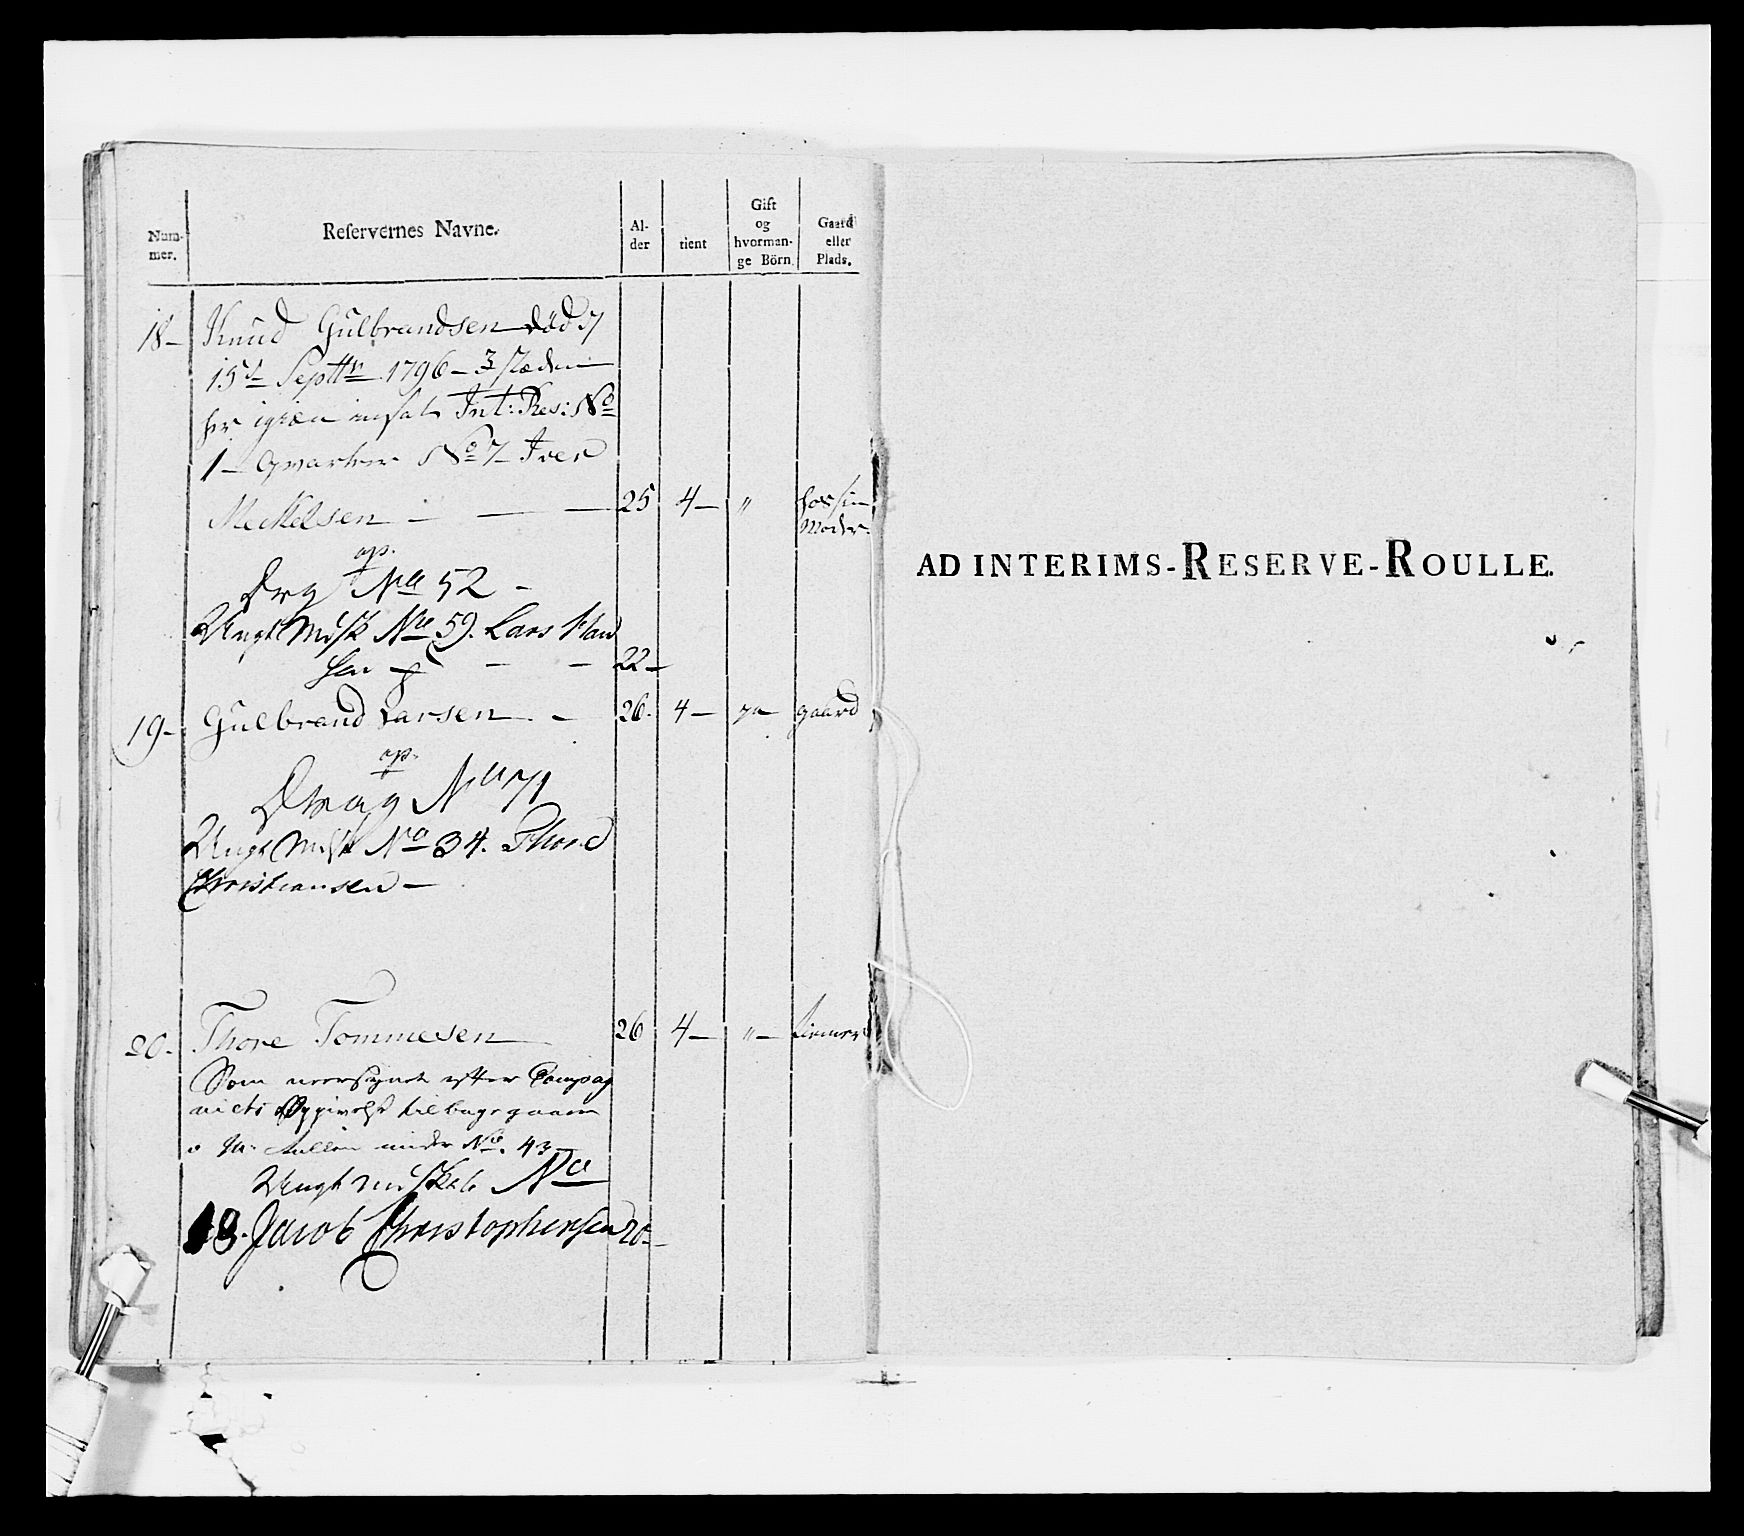 Num-
mer.
Reservernes Navne.
Al-
der
tient
Gift
og
hvorman-
ge Börn
Gaard
eller
Plads.
18- Knud Gulbrandsen död
15d Septtr 1796 - I Stæden
her igien insat Int: Res: No
1 - Qvarteer No 7 - Iver
Meckelsen - - - 25 4 - " hos sin
Moder
op.
Drg No 52 -
Ungt Mdsk No 59. Lars Han
sen - - 22 -
19- Gulbrand Larsen - 26. 4 - gaard
op.
Drag No 71
Ungt Mdsk No 34. Thord
Christiansen -
20- Thore Tommesen 26 4 - " -
Som efter Compag
niets Opgivelse tilbage
Rullen under No. 43 -
Ungt mdskab No
18. Jacob Christophersen 20 -
AD INTERIMS-RESERVE-ROULLE.